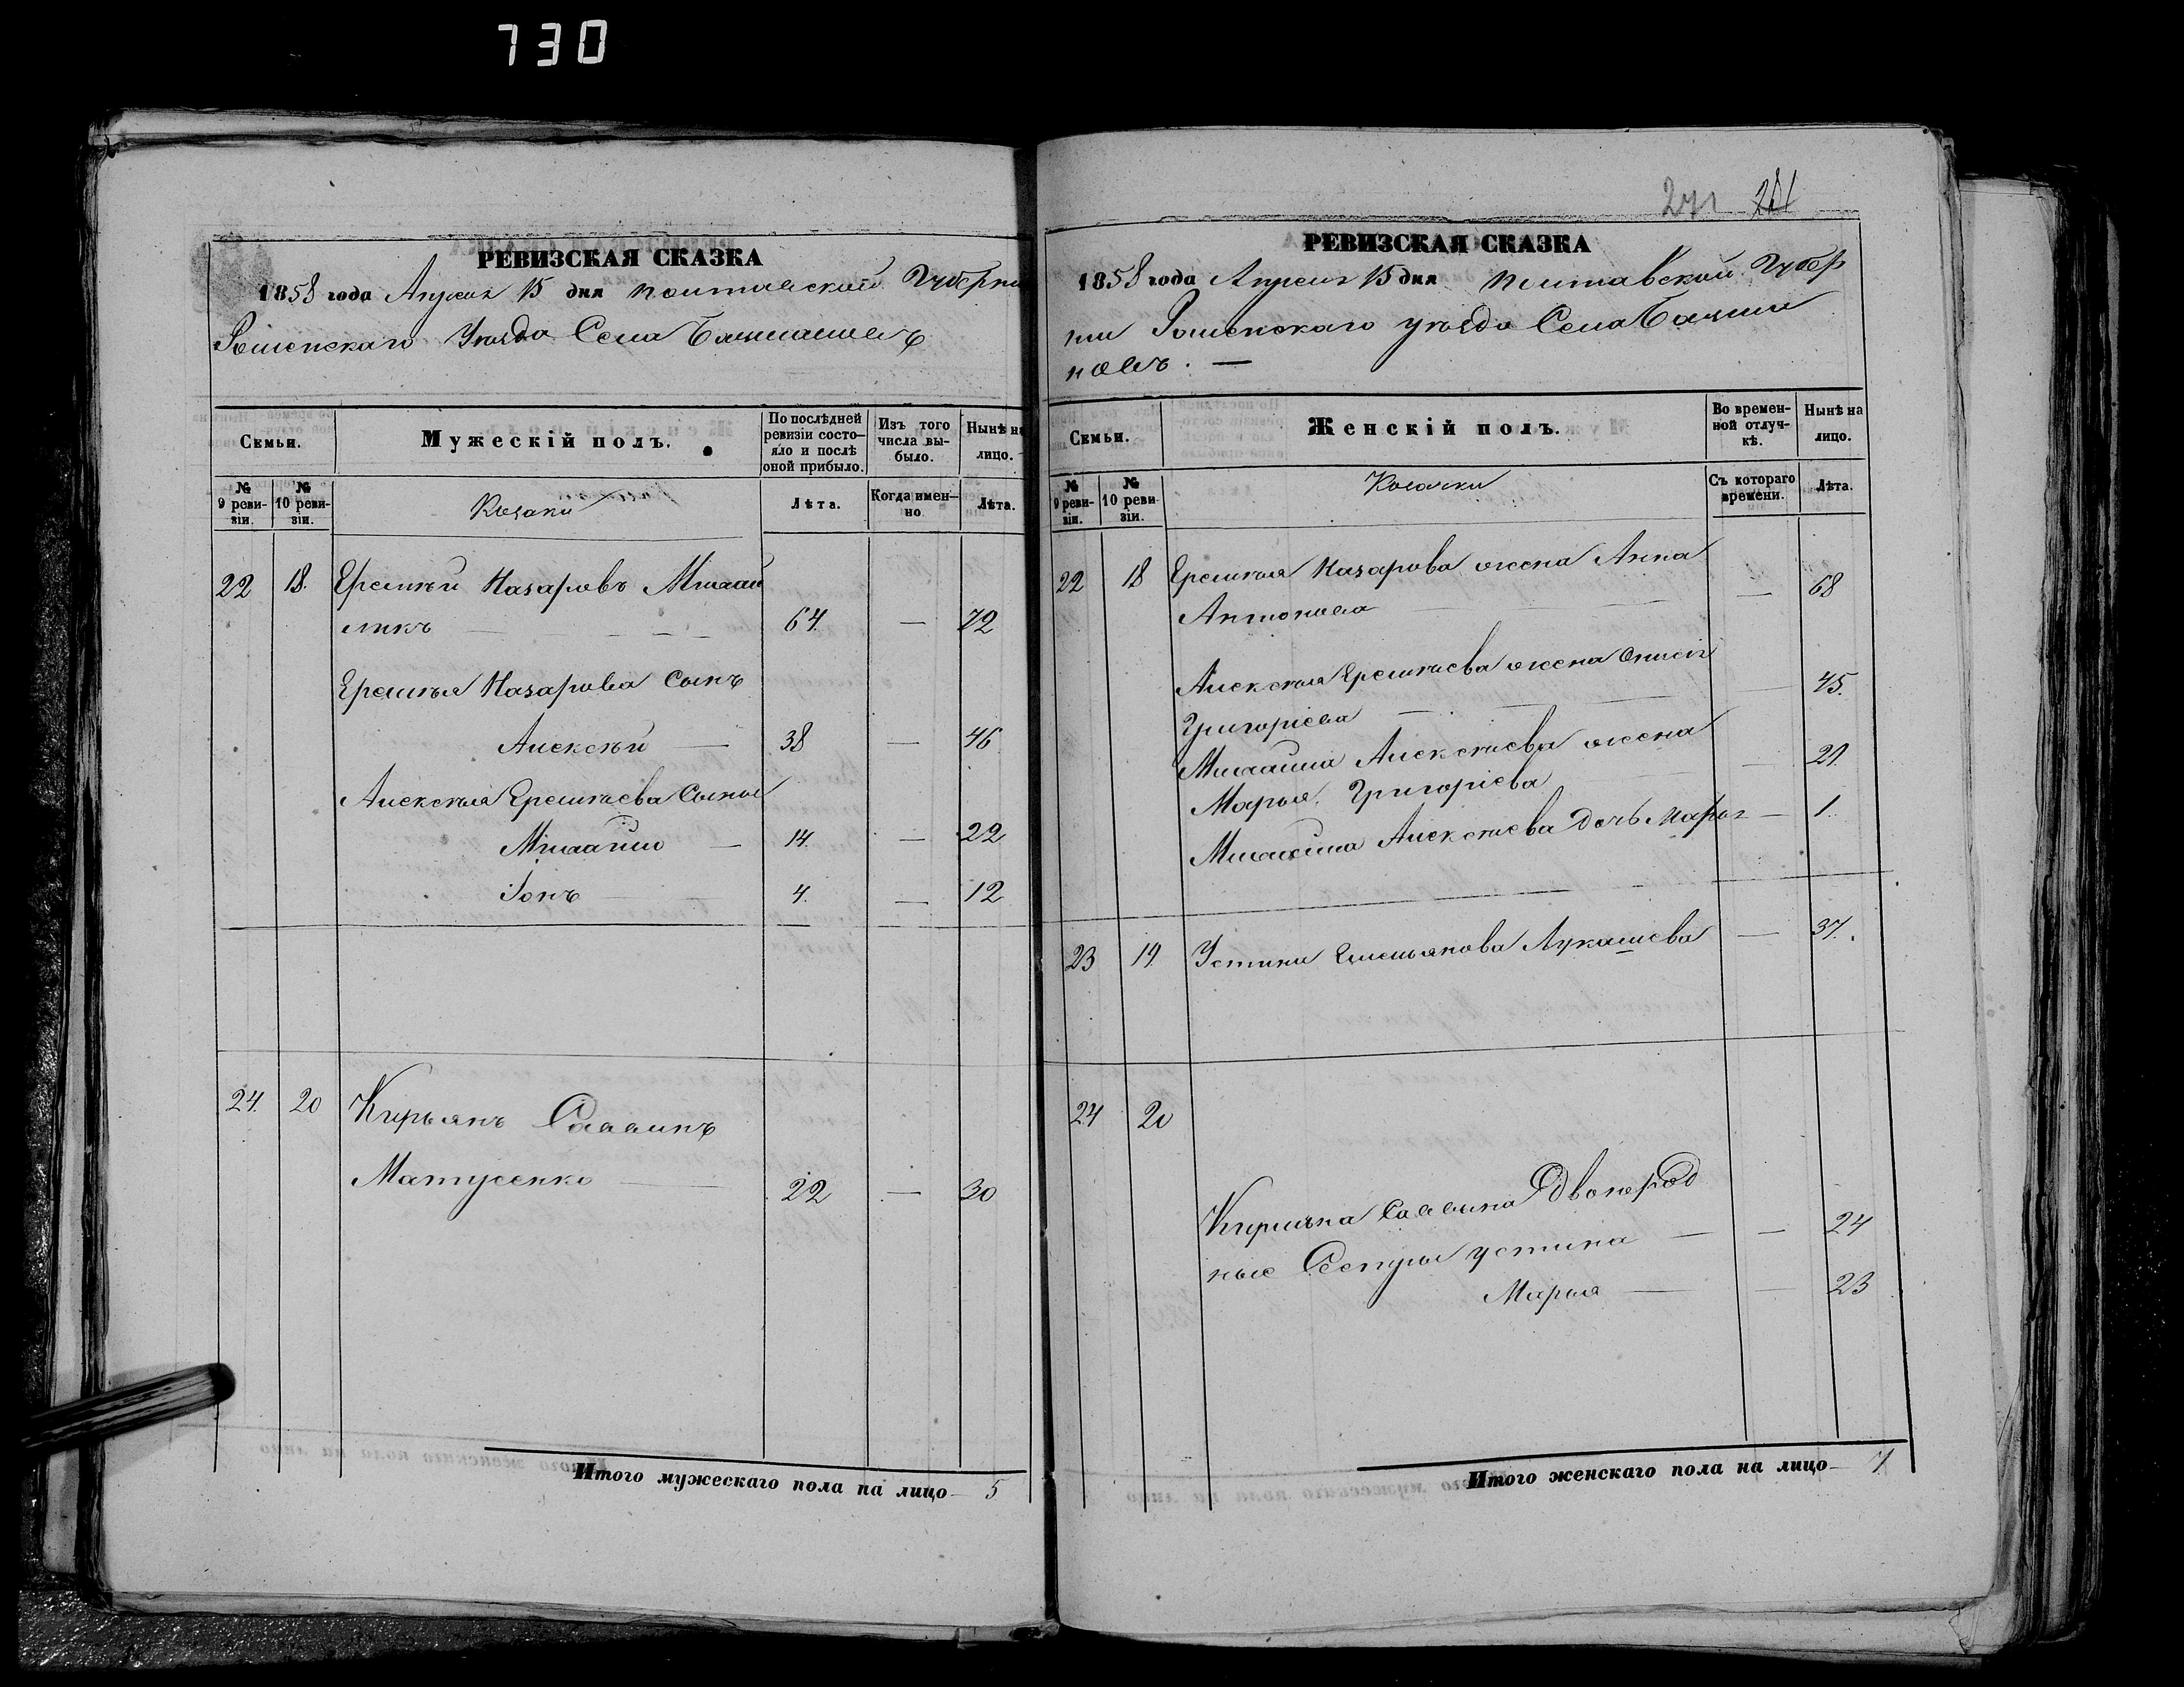 730
271 281
РЕВИЗСКАЯ СКАЗКА
1858 года Апреля 15 дня Полтавской Губерни
Роменскаго Уезда Села
Семьи.
Мужескій полъ.
По послѣдней ревизіи состояло и послѣ оной прибыло.
Изъ того числа выбыло.
Нынѣ на лицо.
№ 9 ревизіи.
№ 10 ревизіи.
Козаки
Лѣта.
Когда именно
Лѣта.
22 18. Еремѣй Назаровъ
64. — 72
Еремѣя Назарова Сынъ
Алексѣй — 38 — 46
Алексѣя Еремѣева Сыны
Михаилъ — 14. — 22
Іонъ 4. — 12
24. 20 Кирьянъ Саввинъ
Матусенко — 22 — 30
Итого мужескаго пола на лицо 5
РЕВИЗСКАЯ СКАЗКА
1858 года Апреля 15 дня Полтавской Губер
ни Роменскаго уезда Села
новъ. —
Семьи.
Женскій полъ.
Во временной отлучкѣ.
Нынѣ на лицо.
№ 9 ревизіи.
№ 10 ревизіи.
Козачки
Съ котораго времени.
Лѣта.
22 18 Еремѣя Назарова жена Анна
Антонова — 68
Алексѣя Еремѣева жена
Григоріева — 45.
Михаила Алексѣева жена
Марья Григоріева — 21.
Михаила Алексѣева дочь Марья — 1.
23 19. Устина Емельянова Лукашева — 37.
24 20
Кирьяна Саввина Двоюрод
ные Сестры Устина — 24
Марья — 23
Итого женскаго пола на лицо 7